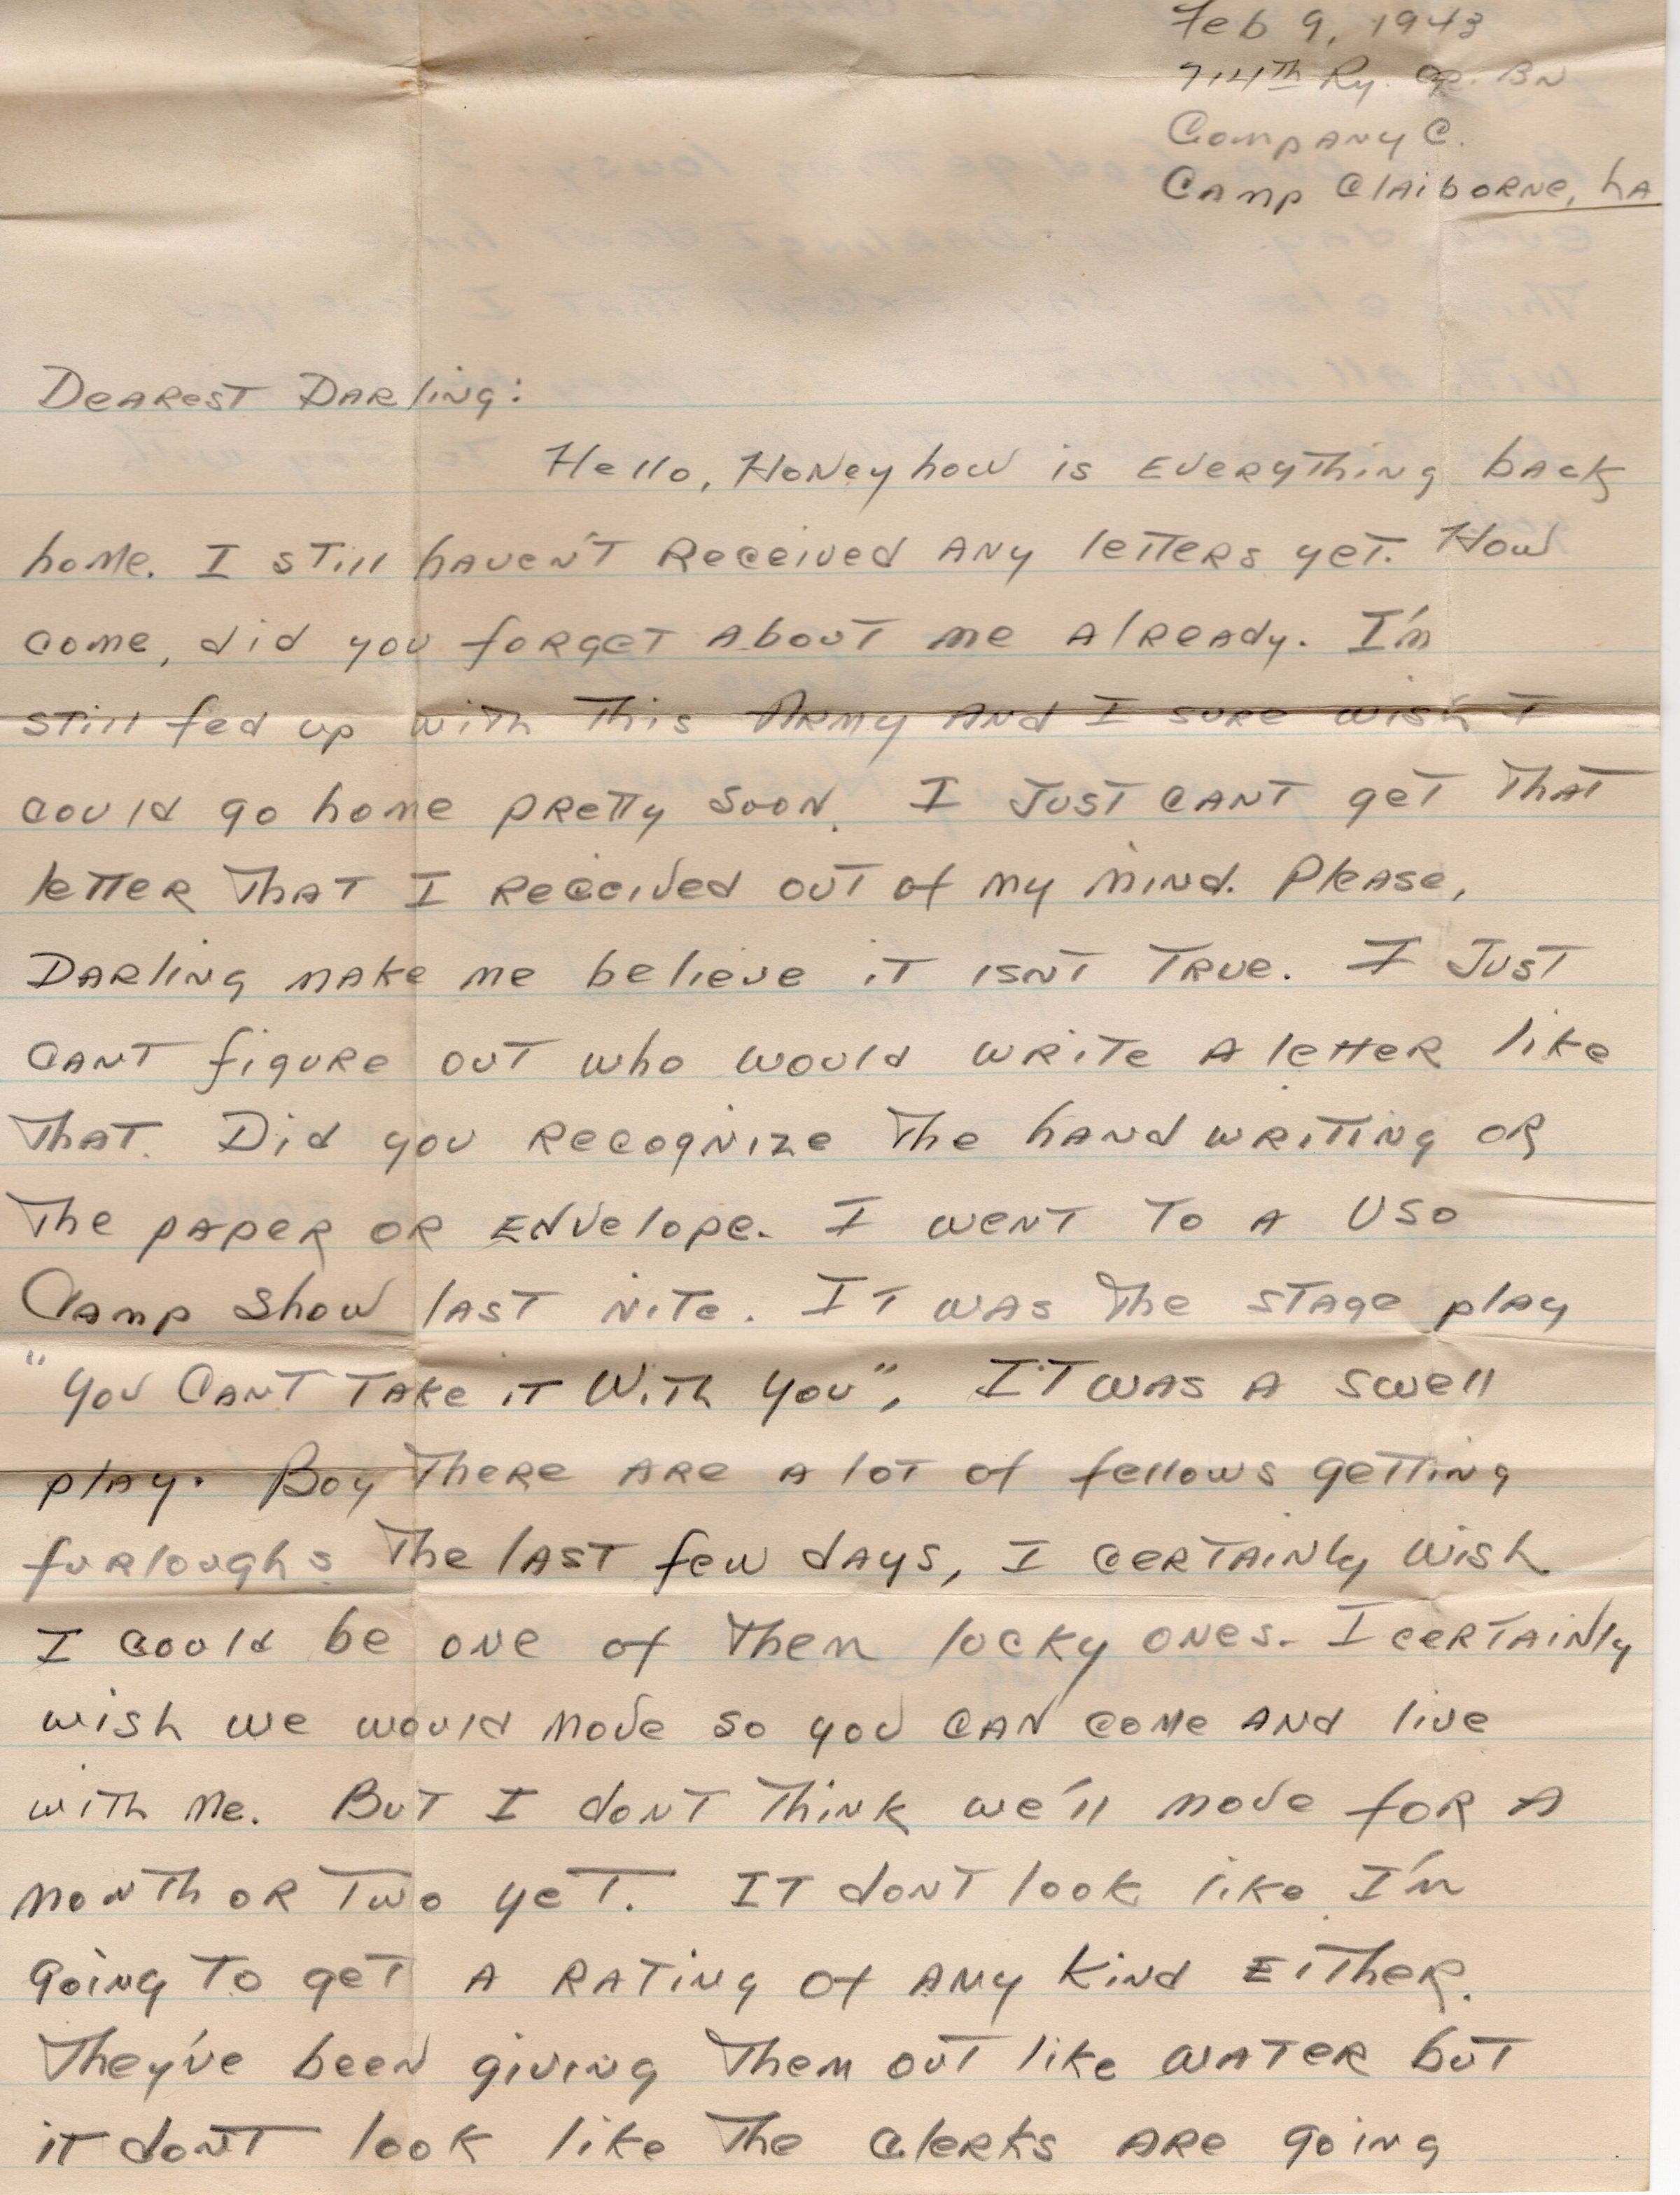 Feb 9, 1943
714th Ry. Op. BN
Company C.
Camp Claiborne, La
Dearest Darling:
Hello, Honey how is everything back
home. I still haven't received any letters yet. How
come, did you forget about me already. I'm
still fed up with this Army and I sure wish I
could go home pretty soon. I just cant get that
letter that I received out of my mind. Please,
Darling make me believe it isnt true. I just
cant figure out who would write a letter like
that. Did you recognize the hand writing or
the paper or envelope. I went to a USO
Camp Show last nite. It was the stage play
"You Cant Take it With You", It was a swell
play. Boy there are a lot of fellows getting
furloughs the last few days, I certainly wish
I could be one of them lucky ones. I certainly
wish we would move so you can come and live
with me. But I dont think we'll move for a
month or two yet. It dont look like I'm
going to get a rating of any kind either.
They've been giving them out like water but
it dont look like the clerks are going